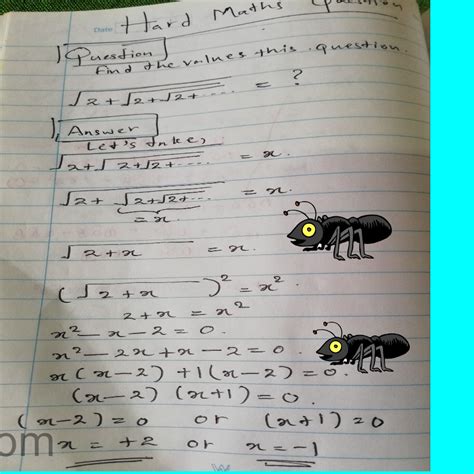 Date
Hard Maths Question
1) Question
Find the values this question.
√2+√2+√2+..... = ?
1) Answer
Let's take,
√2+√2+√2+..... = x.
√2+√2+√2+..... = x.
= x.
√2+x = x.
(√2+x)² = x²
2+x = x²
x²-x-2=0.
x²-2x+x-2=0.
x(x-2)+1(x-2)=0.
(x-2)(x+1)=0.
(x-2)=0 or (x+1)=0
om
x = +2 or x = -1